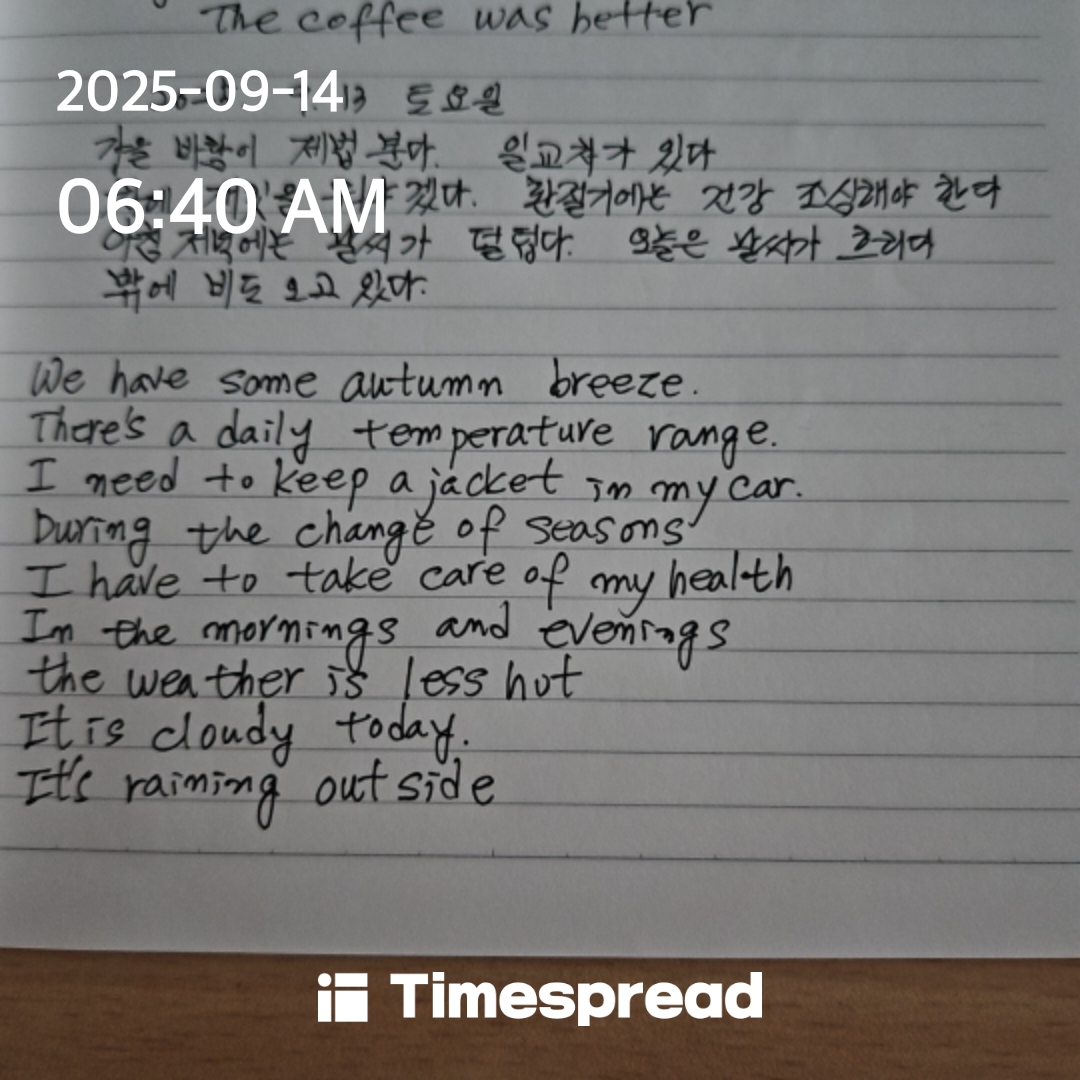 The coffee was better
2025-09-14
13 토요일
가을 바람이 제법 분다. 일교차가 있다
06:40 AM
겠다. 환절기에는 건강 조심해야 한다
아침 저녁에는 날씨가 덜 덥다. 오늘은 날씨가 흐리다
밖에 비도 오고 있다.
We have some autumn breeze.
There's a daily temperature range.
I need to keep a jacket in my car.
During the change of seasons
I have to take care of my health
In the mornings and evenings
the weather is less hot
It is cloudy today.
It's raining outside
Timespread